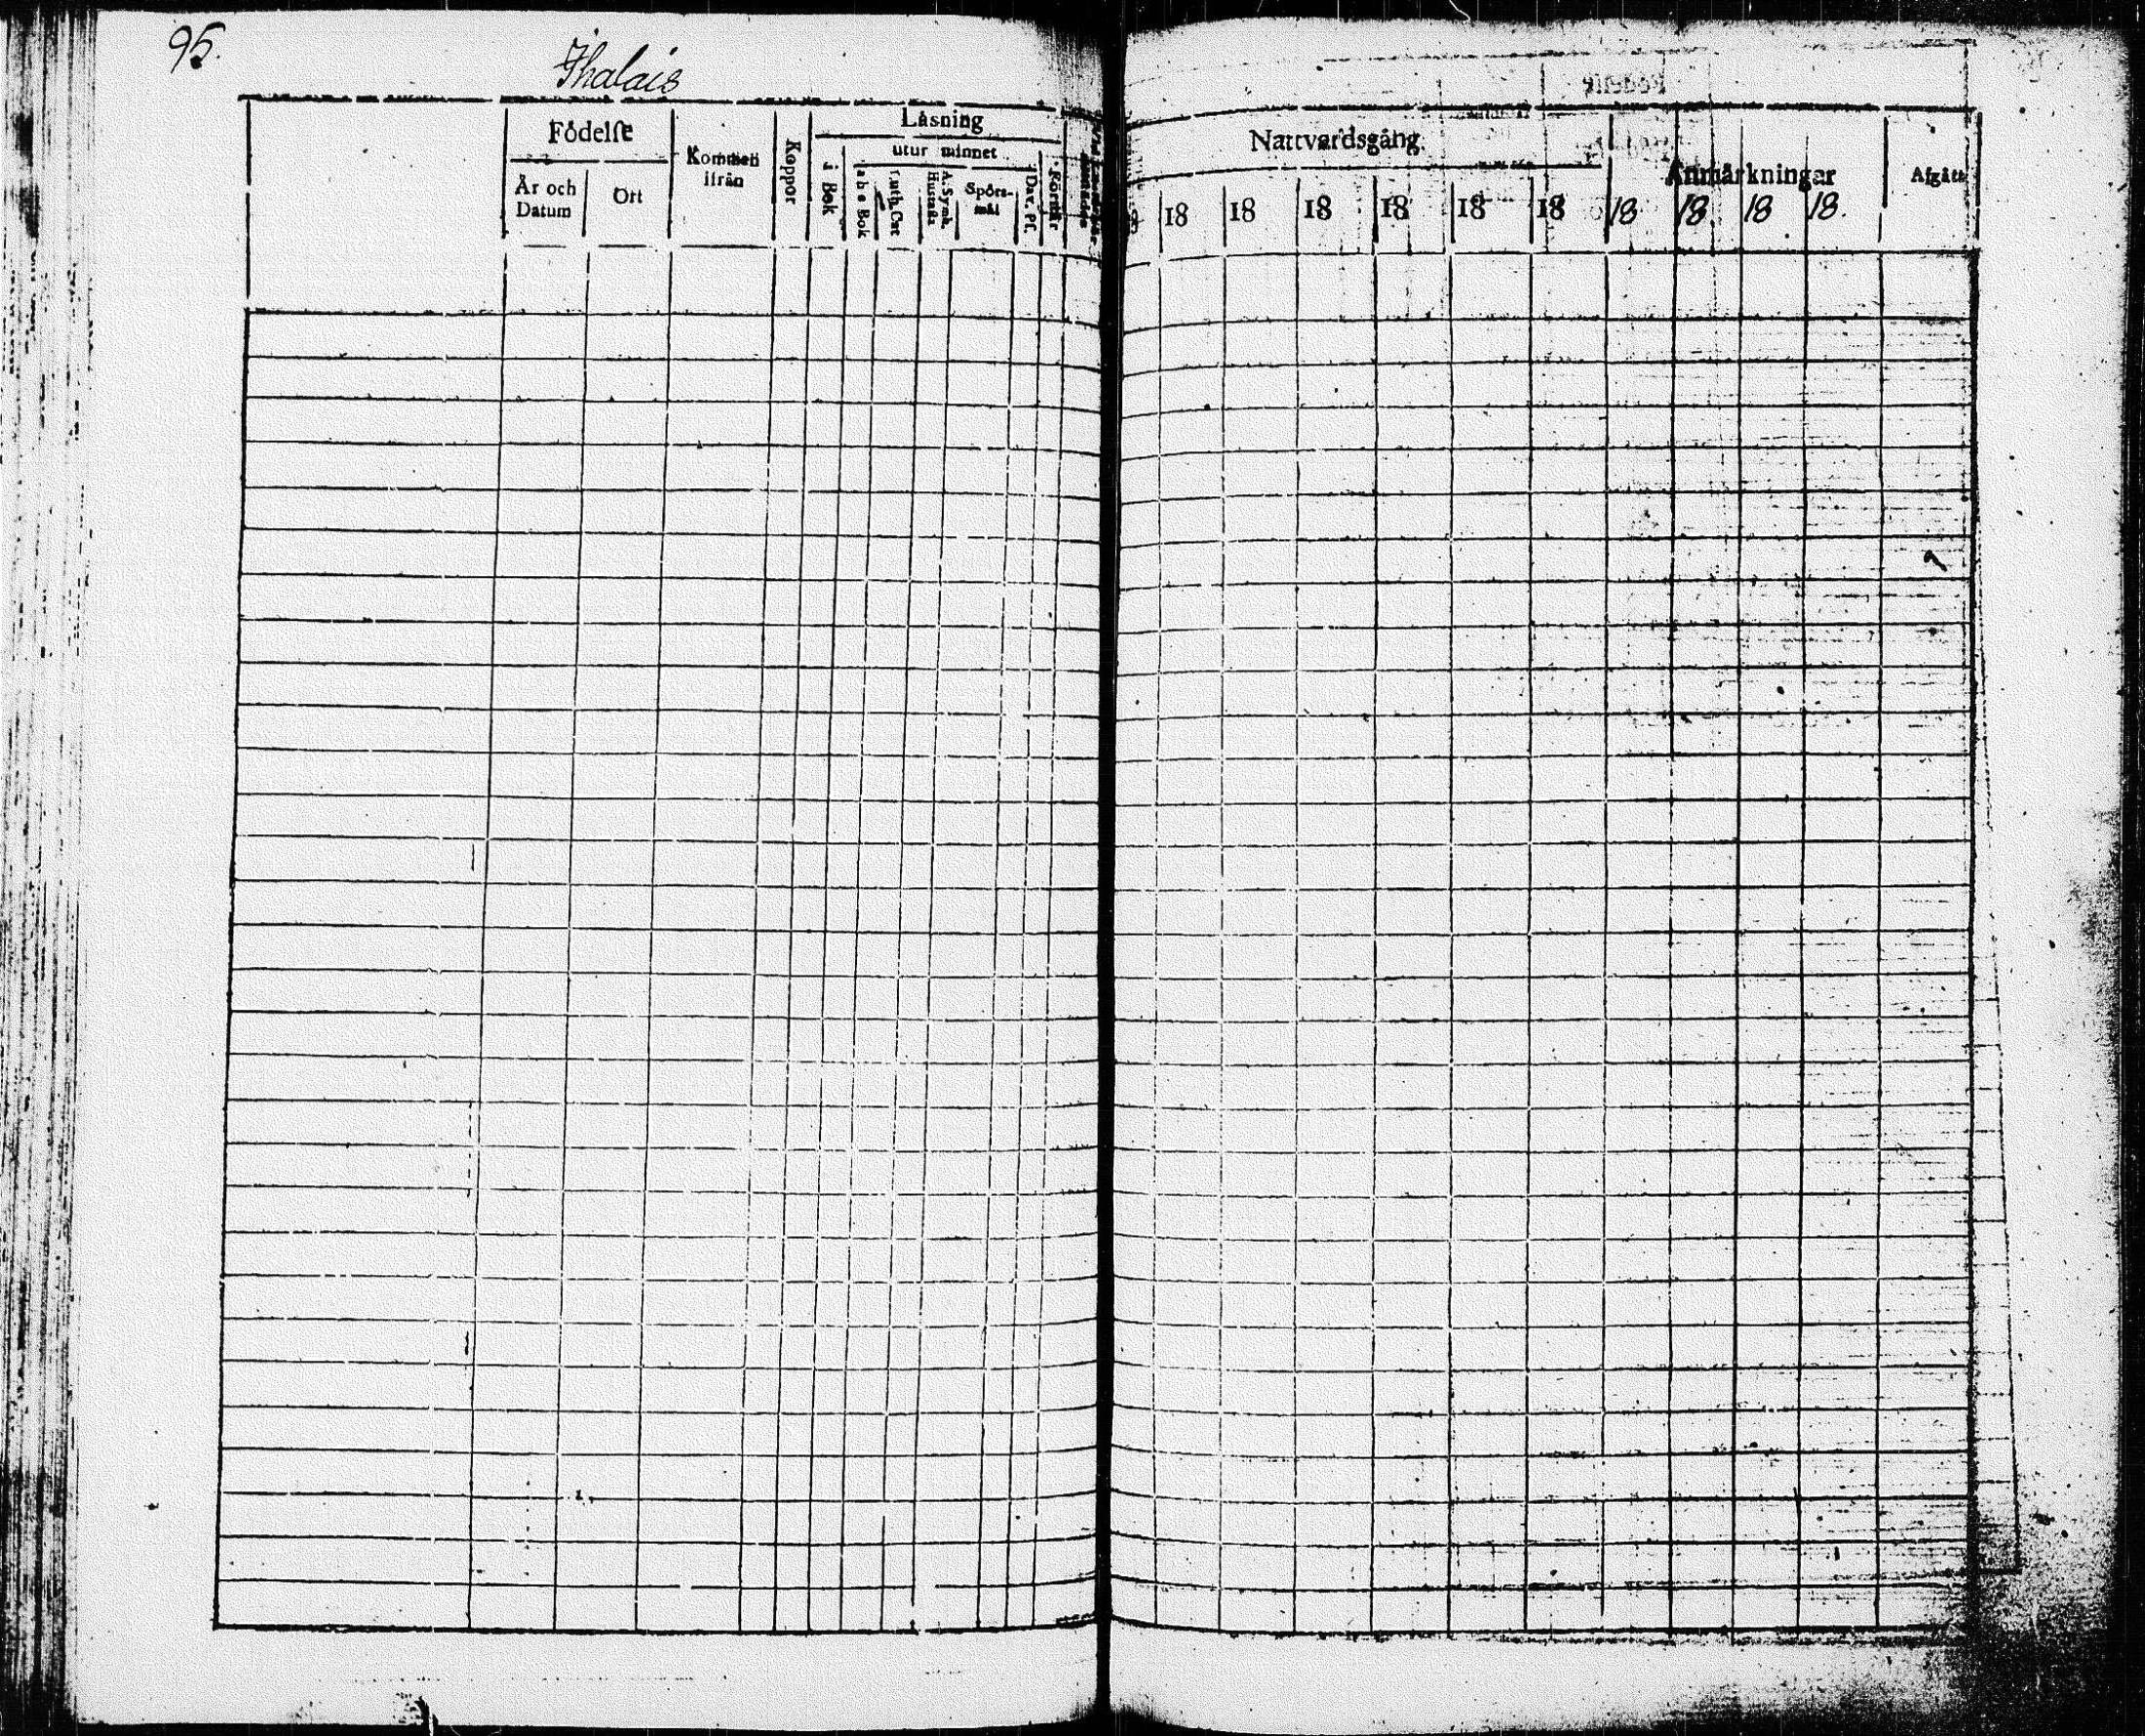 95.
Ihalais
Födelſe
År och Datum
Ort
Kommen ifrån
Koppor
Läsning
utur minnet
i Bok
a b c Bok
Luth. Cat
A. Symb. Hustafla
Spörs-mål
Dav. Pſ.
Förstår
Nattvardsgång.
18 18 18 18 18 18 18 18 18 18.
Anmärkningar
Afgått